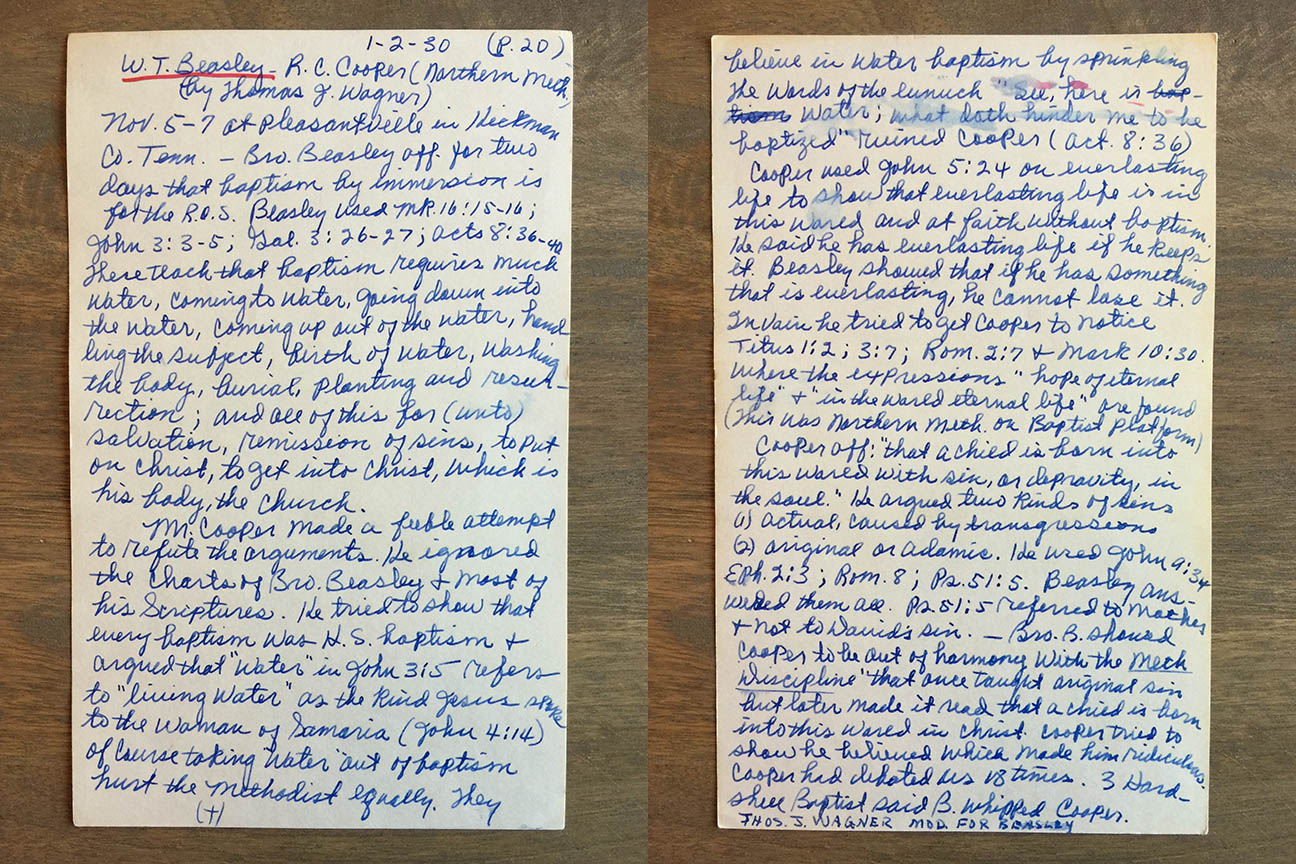 1-2-30 (P. 20)
W. T. Beasley - R. C. Cooper (Northern Meth.)
(by Thomas J. Wagner)
Nov. 5-7 at Pleasantville in Hickman
Co. Tenn. — Bro. Beasley aff. for two
days that baptism by immersion is
for the R.O.S. Beasley used Mk. 16:15-16;
John 3:3-5; Gal. 3:26-27; Acts 8:36-40
These teach that baptism requires much
water, coming to water, going down into
the water, coming up out of the water, hand
ling the subject, birth of water, washing
the body, burial, planting and resur-
rection; and all of this for (unto)
salvation, remission of sins, to put
on Christ, to get into Christ, which is
his body, the church.
Mr. Cooper made a feeble attempt
to refute the arguments. He ignored
the charts of Bro. Beasley & most of
his Scriptures. He tried to show that
every baptism was H.S. baptism &
argued that "water" in John 3:5 refers
to "living water" as the kind Jesus spoke
to the woman of Samaria (John 4:14)
of course taking "water" out of baptism
hurt the Methodist equally. They
(+)
believe in water baptism by sprinkling
The words of the eunuch "See, here is bap-
tism water; what doth hinder me to be
baptized" ruined Cooper (Act. 8:36)
Cooper used John 5:24 on everlasting
life to show that everlasting life is in
this world and at faith without baptism.
He said he has everlasting life if he keeps
it. Beasley showed that if he has something
that is everlasting, he cannot lose it.
In vain he tried to get Cooper to notice
Titus 1:2; 3:7; Rom. 2:7 & Mark 10:30.
where the expressions "hope of eternal
life" & "in the world eternal life" are found
(This was Northern Meth. on Baptist Platform)
Cooper aff: "that a child is born into
this world with sin, or depravity, in
the soul." He argued two kinds of sins
(1) actual, caused by transgressions
(2) original or adamic. He used John 9:34
Eph. 2:3; Rom. 8; Ps. 51:5. Beasley ans-
wered them all. Ps. 51:5 referred to mother
& not to David's sin. — Bro. B. showed
Cooper to be out of harmony with the Meth
Discipline "that once taught original sin
but later made it read that a child is born
into this world in Christ. Cooper tried to
show he believed which made him ridiculous.
Cooper had debated us 18 times. 3 Hard-
shell Baptist said B. whipped Cooper.
THOS. J. WAGNER MOD. FOR BEASLEY